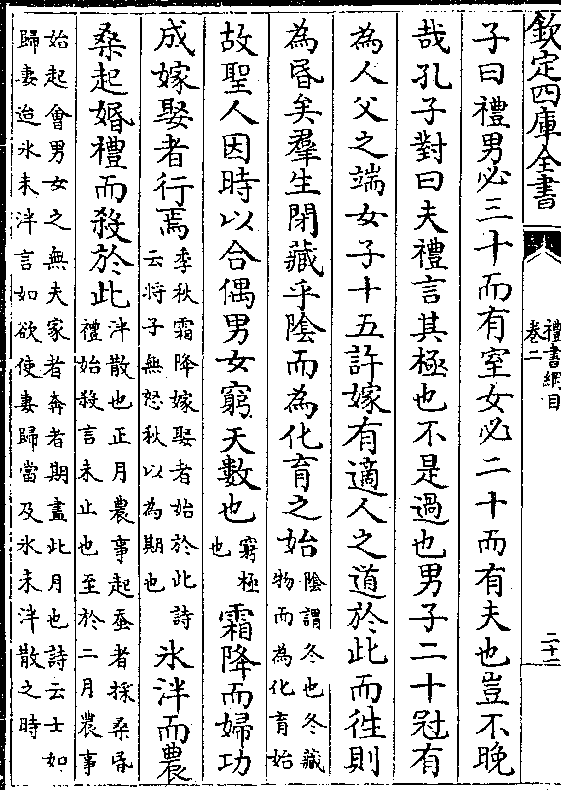 欽定四庫全書
禮書綱目
卷二
二十二
子曰禮男必三十而有室女必二十而有夫也豈不晚
哉孔子對曰夫禮言其極也不是過也男子二十冠有
為人父之端女子十五許嫁有適人之道於此而徃則
為昏矣羣生閉藏乎陰而為化育之始
陰謂冬也冬藏
物而為化育始
故聖人因時以合偶男女窮天數也
窮極
也
霜降而婦功
成嫁娶者行焉
季秋霜降嫁娶者始於此詩
云將子無怒秋以為期也
氷泮而農
桑起婚禮而殺於此
泮散也正月農事起蚕者採桑昏
禮始殺言未止也至於二月農事
始起會男女之無夫家者奔者期盡此月也詩云士如
歸妻迨氷未泮言如欲使妻歸當及氷未泮散之時